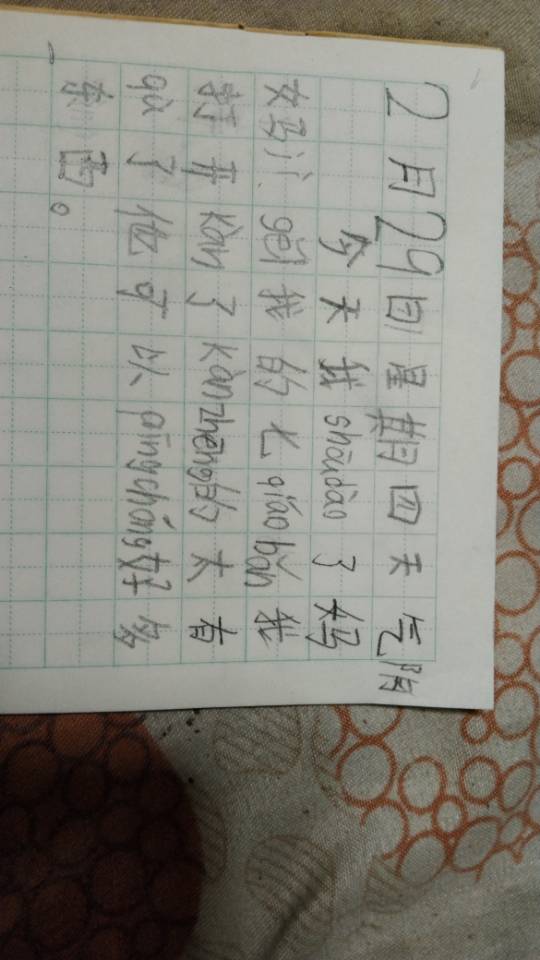 2月29日星期四天气阴
今天我shōudào了妈
妈让gěi我的七qiǎobǎn我
打开kàn了kànzhēng的太有
qù了他可以pīngchéng好多
东西。